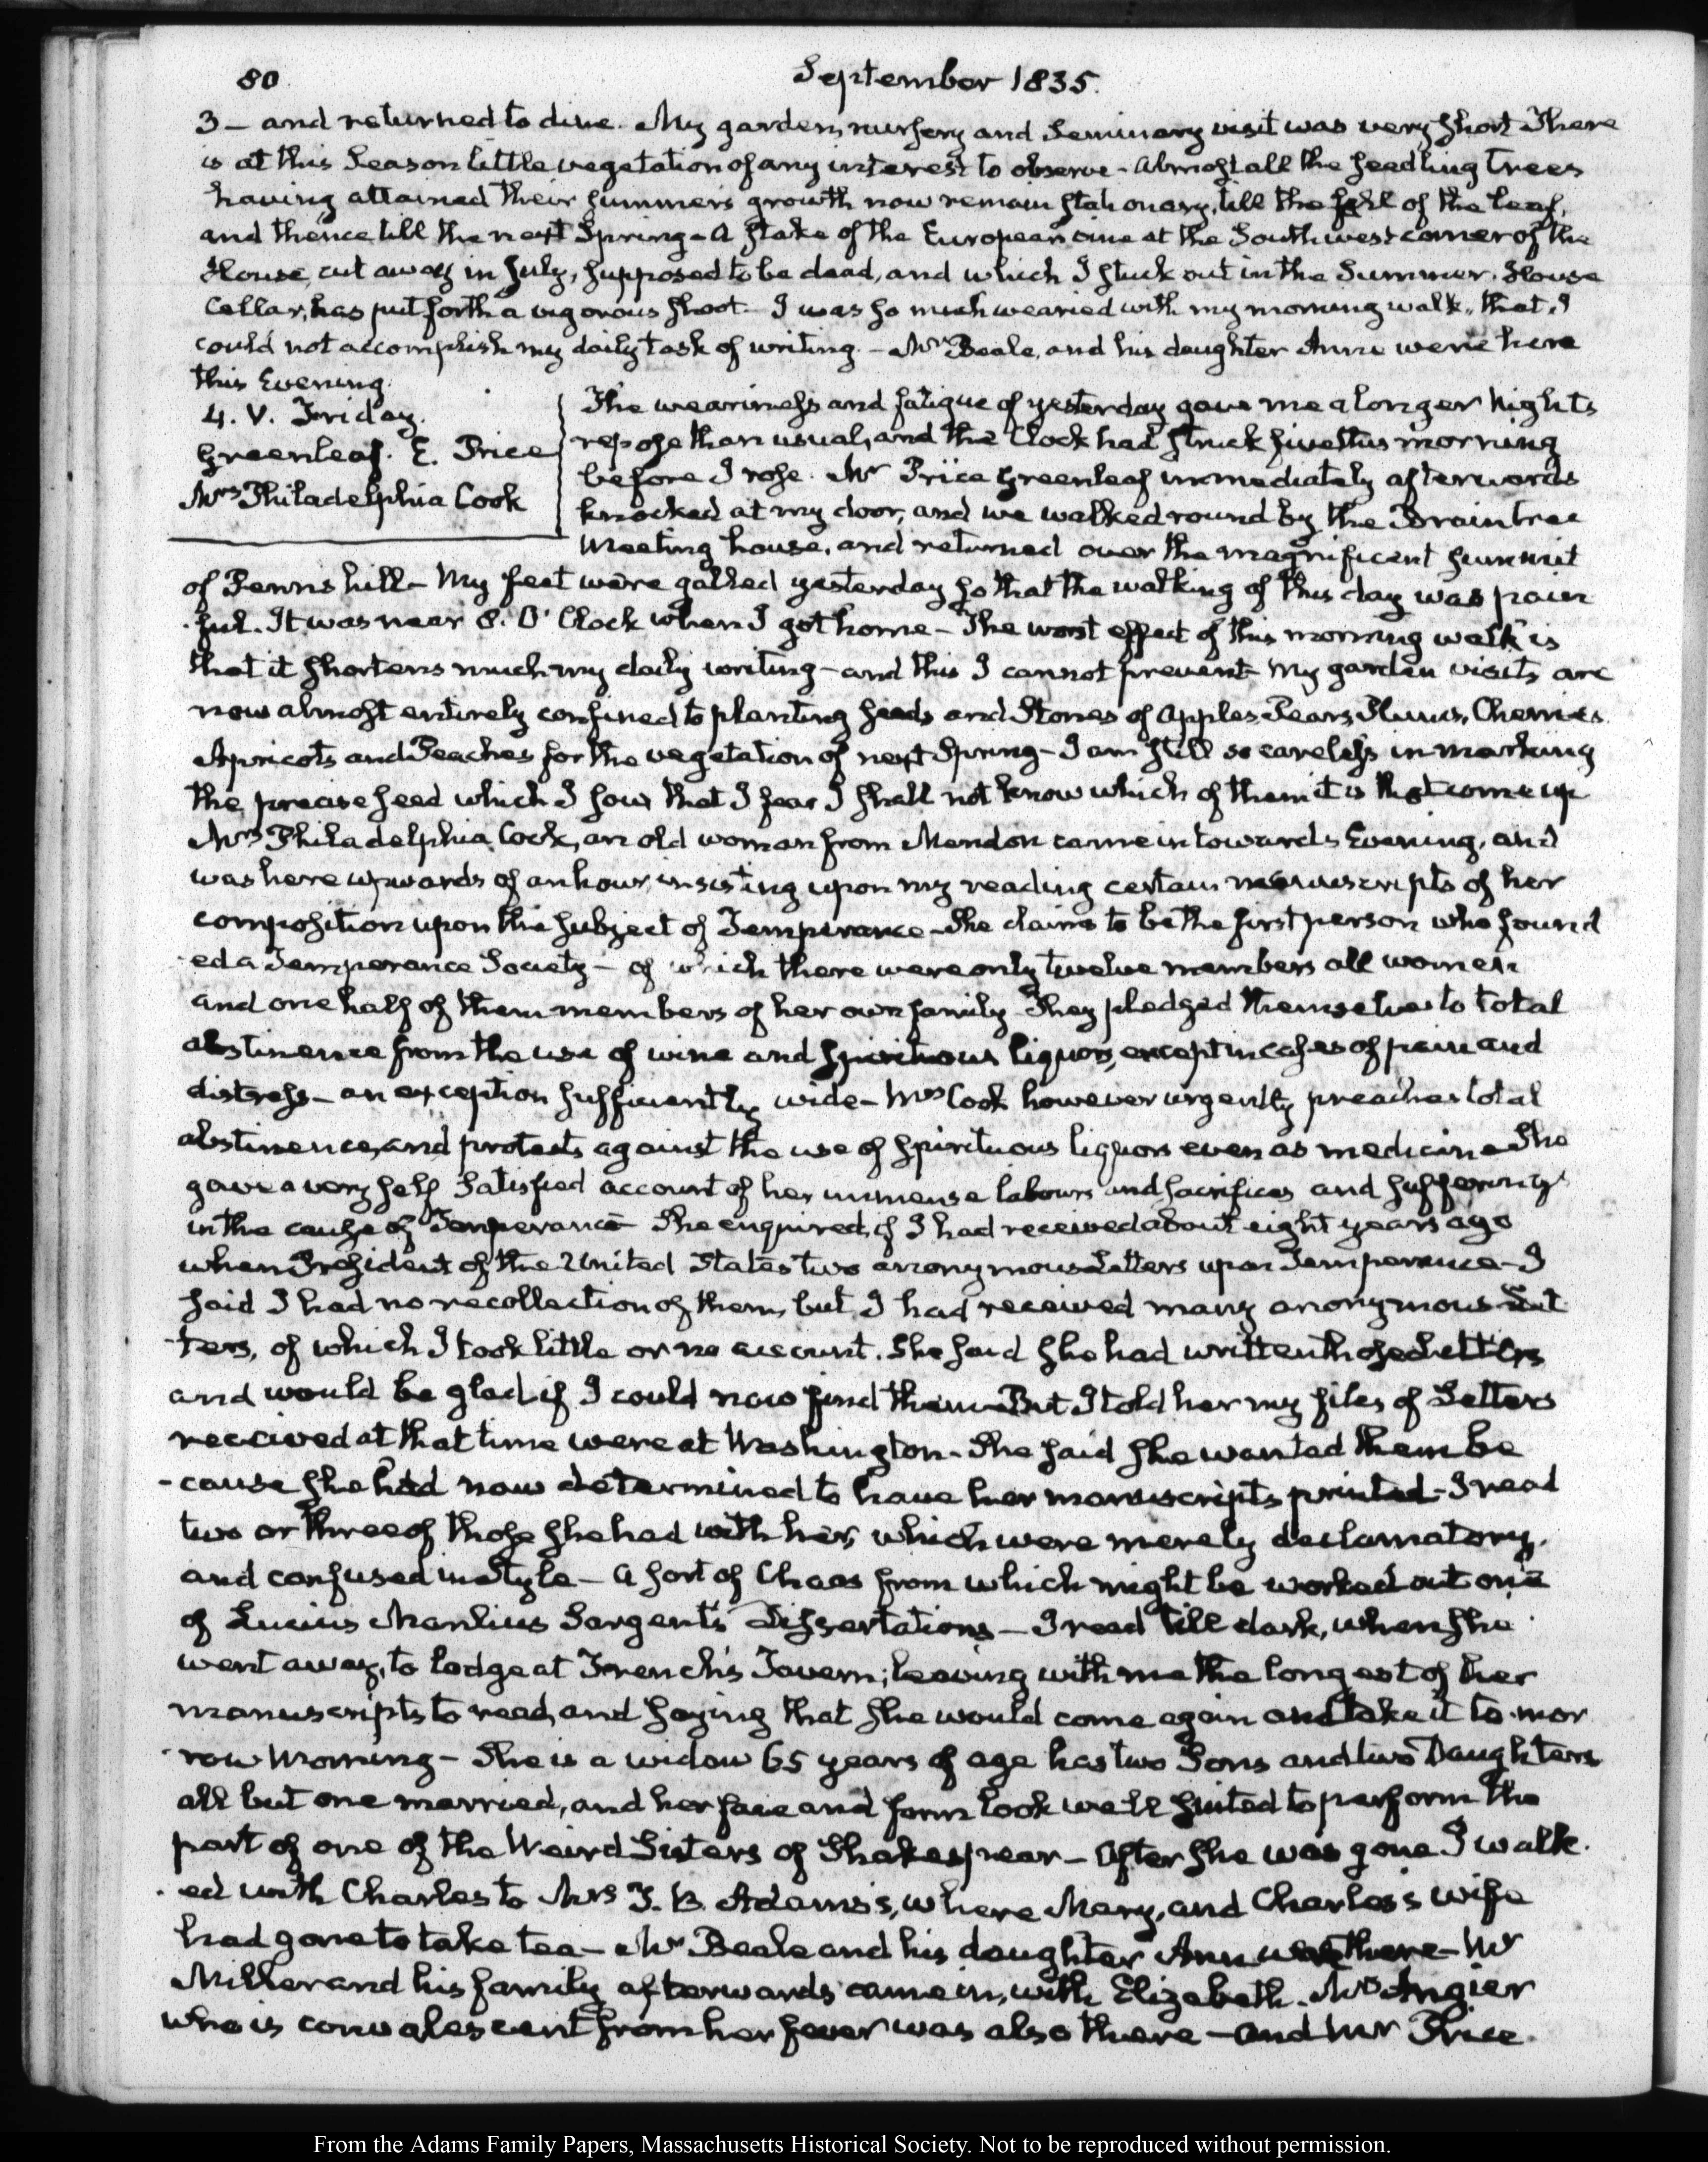 80
September 1835.
3 — and returned to dine. My garden, nursery and Seminary visit was very short There
is at this Season little vegetation of any interest to observe - almost all the seedling trees
having attained their summer's growth now remain stationary, till the fall of the leaf,
and thence till the next Spring - A stake of the European vine at the Southwest corner of the
House, cut away in July, supposed to be dead, and which I stuck out in the Summer. House
Cellar, has put forth a vigorous shoot - I was so much wearied with my morning walk, that I
could not accomplish my daily task of writing. — Mr Beale, and his daughter Anne were here
this Evening.
4. V. Friday.
Greenleaf. E. Price
Mrs Philadelphia Cook
The weariness and fatigue of yesterday gave me a longer Night's
repose than usual, and the Clock had struck five this morning
before I rose. Mr Price Greenleaf immediately afterwards
knocked at my door, and we walked round by the Braintree
Meeting house, and returned over the magnificent summit
of Penns hill - My feet were galled yesterday so that the walking of this day was pain
-ful. It was near 8. O'Clock when I got home - The worst effect of this morning walk is
that it shortens much my daily writing - and this I cannot prevent - My garden visits are
now almost entirely confined to planting seeds and Stones of Apples, Pears, Plums, Cherries
Apricots and Peaches for the vegetation of next Spring - I am still so careless in marking
the precise seed which I sow that I fear I shall not know which of them it is that come up
Mrs Philadelphia Cook, an old woman from Mendon came in towards Evening, and
was here upwards of an hour, insisting upon my reading certain manuscripts of her
composition upon the subject of Temperance - She claims to be the first person who found
-ed a Temperance Society - of which there were only twelve members all women
and one half of them members of her own family - They pledged themselves to total
abstinence from the use of wine and spirituous liquors, except in cases of pain and
distress - an exception sufficiently wide - Mrs Cook however urgently preaches total
abstinence, and protests against the use of spirituous liquors even as medicine She
gave a very self satisfied account of her immense labours and sacrifices and sufferings
in the cause of Temperance - She enquired, if I had received about eight years ago
when President of the United States two anonymous Letters upon Temperance - I
said I had no recollection of them, but I had received many anonymous Let
-ters, of which I took little or no account. She said she had written those Letters
and would be glad if I could now find them - But I told her my files of Letters
received at that time were at Washington - She said she wanted them be
-cause she had now determined to have her manuscripts printed - I read
two or three of those she had with her, which were merely declamatory,
and confused in Style - A sort of Chaos from which might be worked out one
of Lucius Manlius Sargent's Dissertations - I read till dark, when she
went away, to lodge at French's Tavern; leaving with me the longest of her
manuscripts to read, and saying that she would come again and take it to-mor
-row Morning - She is a widow 65 years of age has two Sons and two Daughters
all but one married, and her face and form look well suited to perform the
part of one of the Weird Sisters of Shakespear - After she was gone I walk-
-ed with Charles to Mrs T. B. Adams's, where Mary, and Charles's wife
had gone to take tea - Mr Beale and his daughter Ann were there - Mr
Miller and his family afterwards came in, with Elizabeth. Mrs Angier
who is convalescent from her fever was also there - and Mr Price.
From the Adams Family Papers, Massachusetts Historical Society. Not to be reproduced without permission.